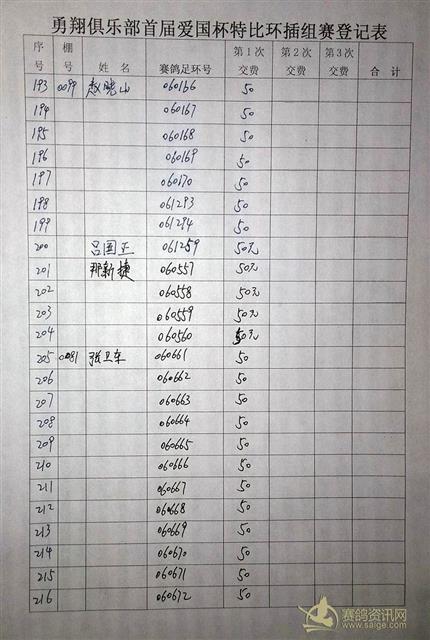 勇翔俱乐部首届爱国杯特比环插组赛登记表
序号 棚号 姓名 赛鸽足环号 第1次交费 第2次交费 第3次交费 合计
193 0099 赵晓山 060166 50
194 060167 50
195 060168 50
196 060169 50
197 060170 50
198 061293 50
199 061294 50
200 吕国正 061259 50元
201 那新捷 060557 50元
202 060558 50元
203 060559 50元
204 060560 50元
205 0081 张卫东 060661 50
206 060662 50
207 060663 50
208 060664 50
209 060665 50
210 060666 50
211 060667 50
212 060668 50
213 060669 50
214 060670 50
215 060671 50
216 060672 50
赛鸽资讯网
www.saige.com